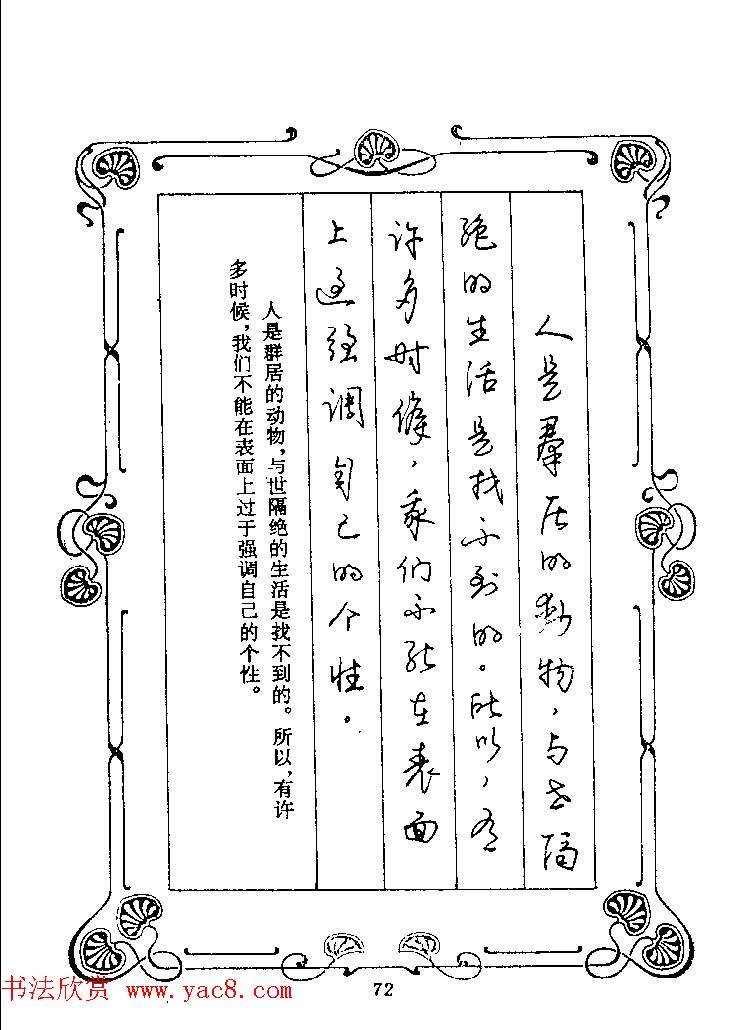 人是羣居的動物，与世隔
绝的生活是找不到的。所以，有
许多时候，我们不能在表面
上过强调自己的个性。
人是群居的动物，与世隔绝的生活是找不到的。所以，有许
多时候，我们不能在表面上过于强调自己的个性。
书法欣赏 www.yac8.com
72